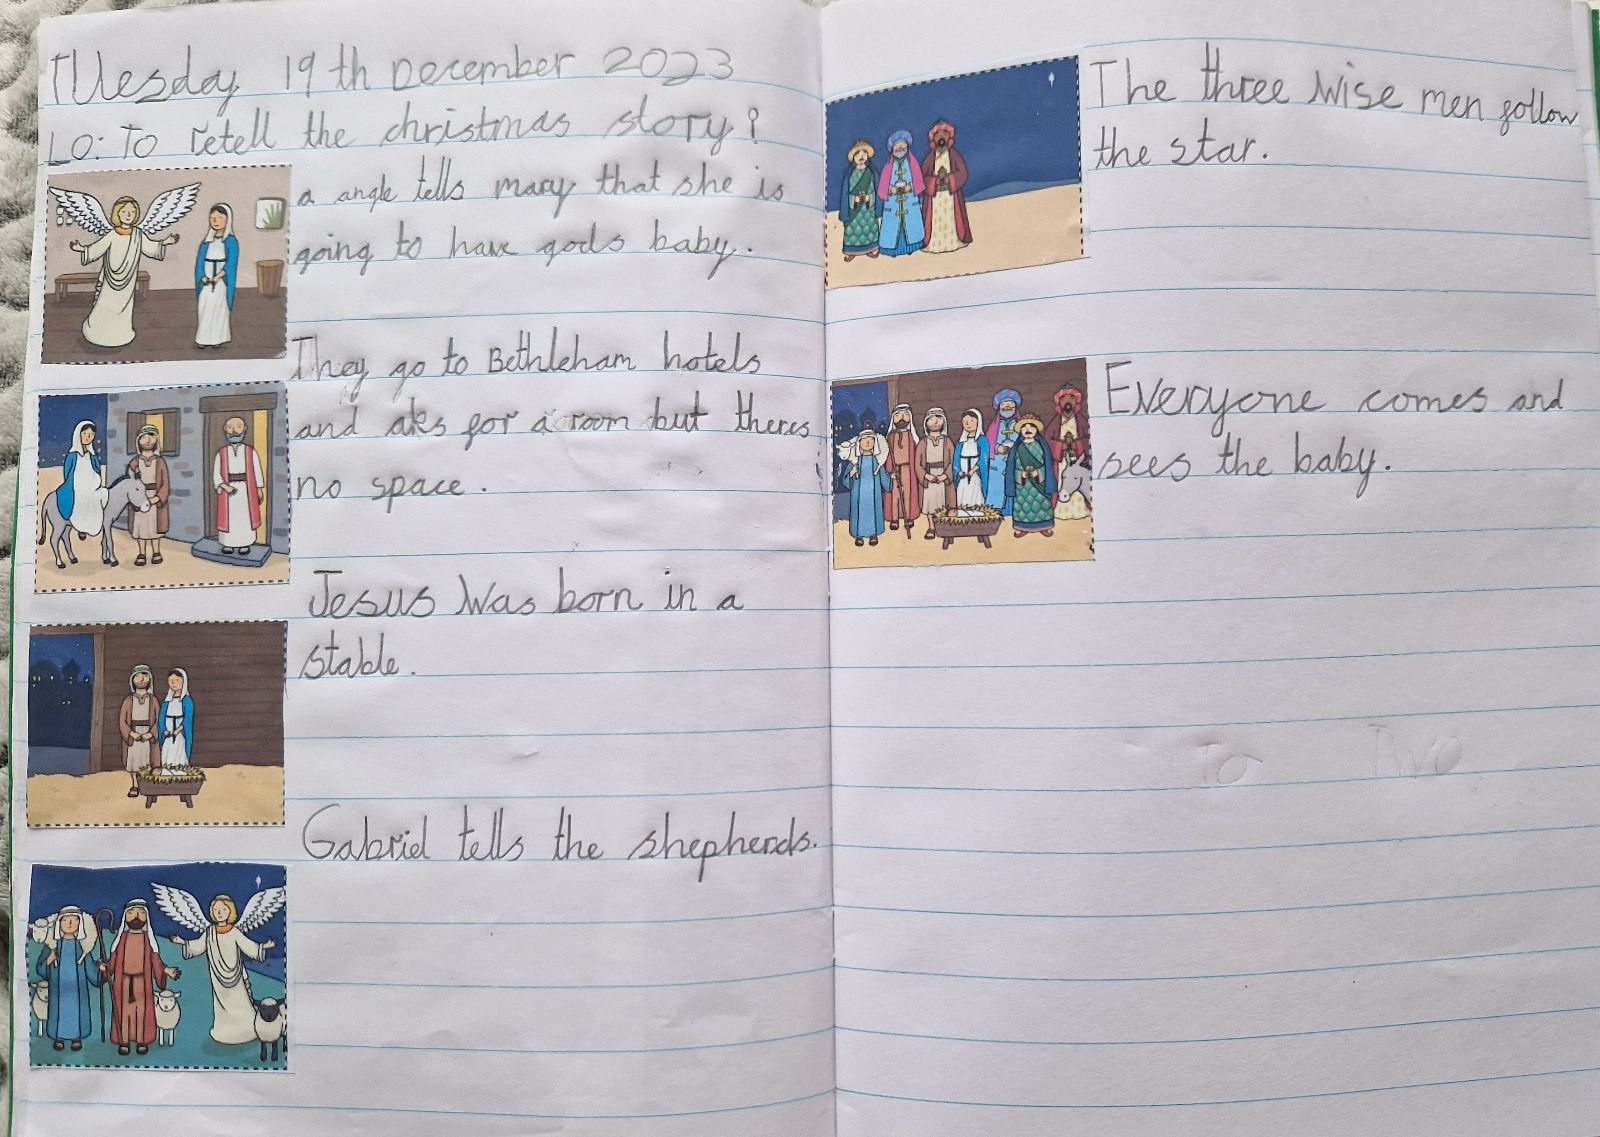 Tuesday 19th December 2023
LO: To retell the christmas story?
a angle tells mary that she is
going to have gods baby.
They go to Bethleham hotels
and aks for a room but theres
no space.
Jesus was born in a
stable.
Gabriel tells the shepherds.
The three wise men follow
the star.
Everyone comes and
sees the baby.
To Two